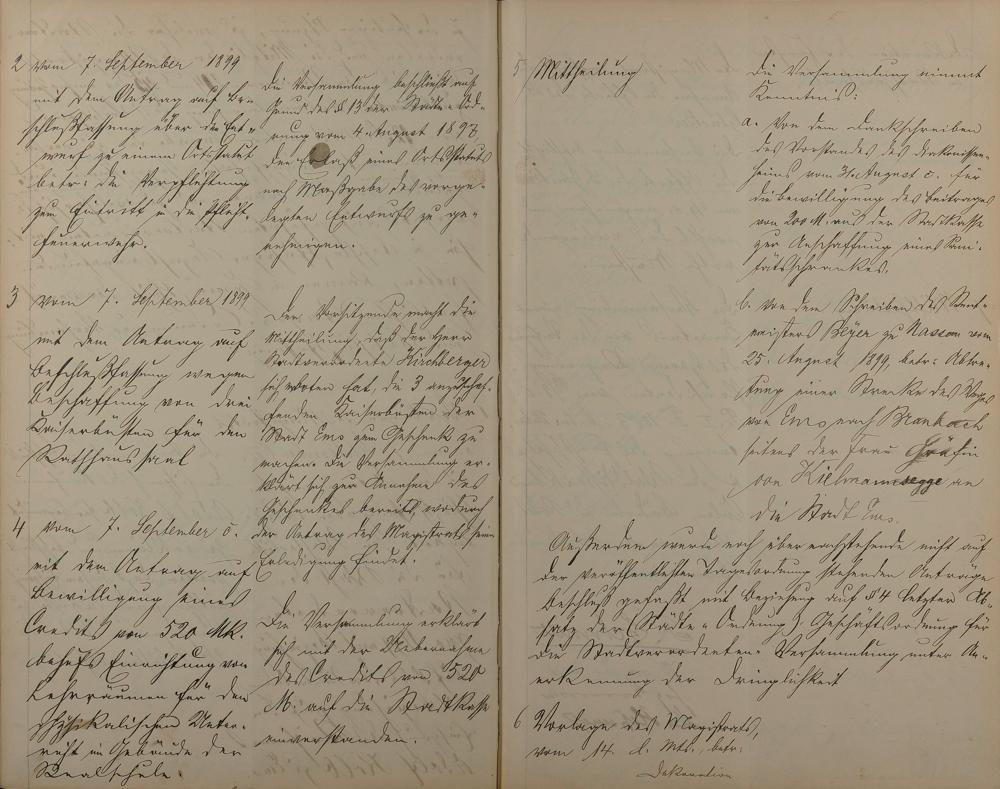 2 vom 7. September 1899
mit dem Antrag auf Be-
schlußfassung über den Ent-
wurf zu einem Ortsstatut
betr: die Verpflichtung
zum Eintritt in die Pflicht-
feuerwehr.
Die Versammlung beschließt auf
Grund des § 13 der Städte-Ord-
nung vom 4. August 1897
den Erlaß eines Ortsstatuts
nach Maßgabe des vorge-
legten Entwurfs zu ge-
nehmigen.
3 vom 7. September 1899
mit dem Antrag auf
Beschlußfassung wegen
Beschaffung von drei
Kaiserbüsten für den
Rathhaussaal
Der Vorsitzende macht die
Mittheilung, daß der Herr
Stadtverordnete Kirchberger
sich erboten hat, die 3 anzuschaf-
fenden Kaiserbüsten der
Stadt Ems zum Geschenk zu
machen. Die Versammlung er-
klärt sich zur Annahme des
Geschenkes bereit, wodurch
der Antrag des Magistrats seine
Erledigung findet.
4 vom 7. September c.
mit dem Antrag auf
Bewilligung eines
Credits von 520 Mk.
behufs Einrichtung von
Lehrräumen für den
physikalischen Unter-
richt im Gebäude der
Realschule.
Die Versammlung erklärt
sich mit der Uebernahme
des Credits von 520
M. auf die Stadtkasse
einverstanden.
5 Mittheilung
Die Versammlung nimmt
Kenntnis:
a. Von dem Dankschreiben
des Vorstandes des Diakonissen-
heims vom 31. August c. für
die Bewilligung des Beitrages
von 200 M. aus der Stadtkasse
zur Anschaffung eines Sani-
tätsschrankes.
b. von dem Schreiben des Rent-
meisters Beyer zu Nassau vom
25. August 1899, betr: Abtre-
tung einer Strecke des Weges
von Ems nach Braubach
seitens der Frau Gräfin
von Kielmannsegge an
die Stadt Ems.
Außerdem wurde noch über nachstehende nicht auf
der veröffentlichten Tagesordnung stehenden Anträge
Beschluß gefaßt mit Beziehung auf § 4 letzten Ab-
satz der (Städte-Ordnung) Geschäftsordnung für
die Stadtverordneten-Versammlung unter An-
erkennung der Dringlichkeit
6 Vorlage des Magistrats,
vom 14. d. Mts., betr:
Dekoration